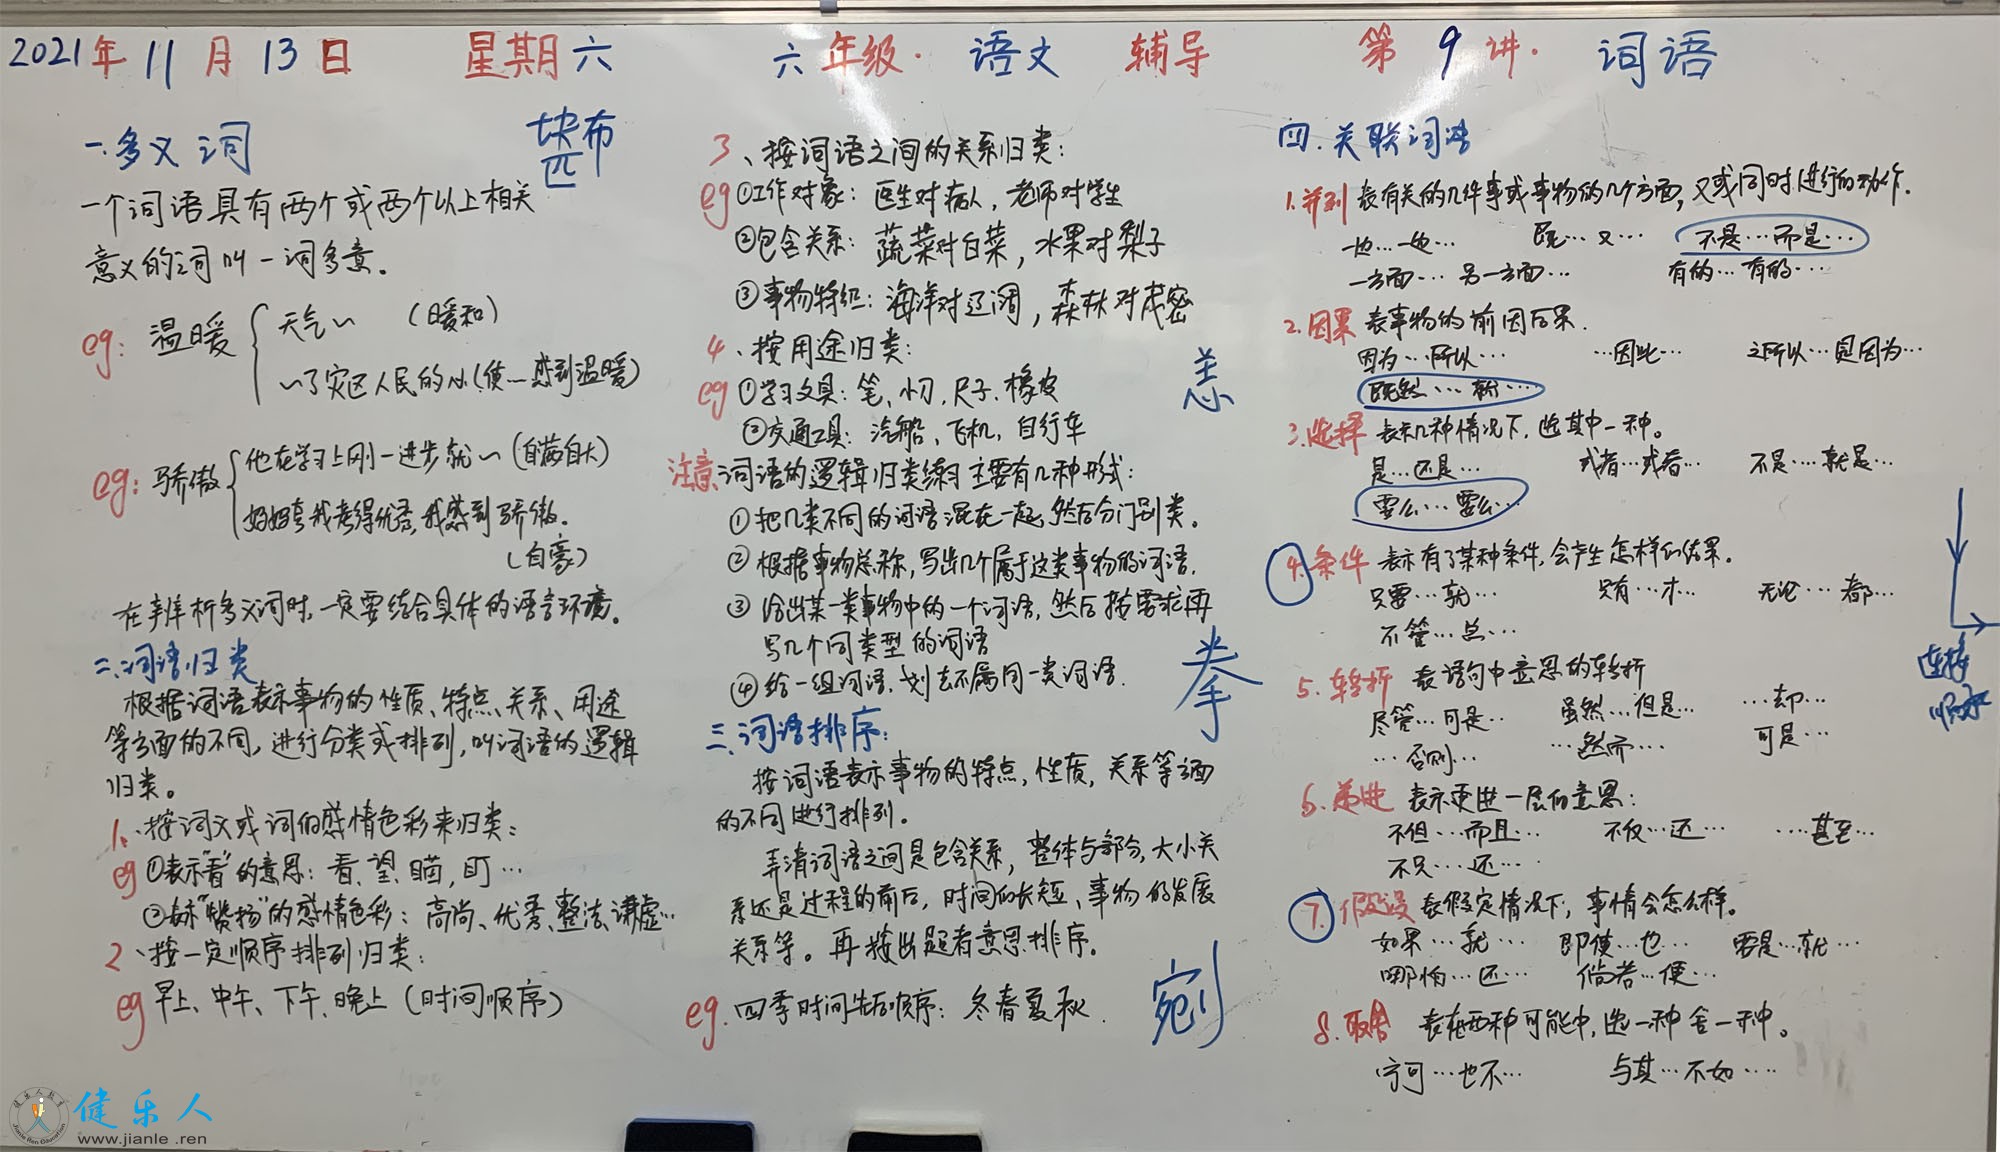 2021年11月13日 星期六 六年级·语文 辅导 第9讲·词语
一.多义词
块布
匹
一个词语具有两个或两个以上相关
意义的词叫一词多意。
eg: 温暖 { 天气~ (暖和)
~了灾区人民的心(使…感到温暖)
eg: 骄傲 { 他在学习上刚一进步就~(自满自大)
妈妈夸我考得优秀,我感到骄傲。
(自豪)
在辨析多义词时,一定要结合具体的语言环境。
二、词语归类
根据词语表示事物的性质、特点、关系、用途
等方面的不同,进行分类或排列,叫词语的逻辑
归类。
1、按词义或词的感情色彩来归类:
eg ①表示"看"的意思:看、望、瞄,盯…
②表示"赞扬"的感情色彩:高尚、优秀、整洁、谦虚…
2、按一定顺序排列归类:
eg 早上、中午、下午、晚上(时间顺序)
3、按词语之间的关系归类:
eg ①工作对象:医生对病人,老师对学生
②包含关系:蔬菜对白菜,水果对梨子
③事物特征:海洋对辽阔,森林对茂密
4、按用途归类:
eg ①学习文具:笔、小刀、尺子、橡皮
②交通工具:汽船、飞机,自行车
恙
注意:词语的逻辑归类练习主要有几种形式:
①把几类不同的词语混在一起,然后分门别类。
②根据事物总称,写出几个属于这类事物的词语.
③给出某一类事物中的一个词语,然后按要求再
写几个同类型的词语
④给一组词语,划去不属同一类词语.
拳
三、词语排序:
按词语表示事物的特点,性质,关系等方面
的不同进行排列。
弄清词语之间是包含关系,整体与部分,大小关
系还是过程的前后,时间的长短、事物的发展
关系等。再按出题者意思排序。
eg.四季时间先后顺序:冬春夏秋.
剜
四.关联词语
1.并列 表有关的几件事或事物的几个方面,又或同时进行的动作.
一边…一边… 既…又… 不是…而是…
一方面…另一方面… 有的…有的…
2.因果 表事物的前因后果.
因为…所以… …因此… 之所以…是因为…
既然…就…
3.选择 表示几种情况下,选其中一种。
是…还是… 或者…或者… 不是…就是…
要么…要么…
4.条件 表示有了某种条件,会产生怎样的结果.
只要…就… 只有…才… 无论…都…
不管…总…
5.转折 表语句中意思的转折
尽管…可是… 虽然…但是… …却…
…否则… …然而… 可是…
6.递进 表示更进一层的意思:
不但…而且… 不仅…还… …甚至…
不只…还…
7.假设 表假定情况下,事情会怎么样。
如果…就… 即使…也… 要是…就…
哪怕…还… 倘若…便…
8.取舍 表在两种可能中,选一种舍一种。
宁可…也不… 与其…不如…
健乐人
www.jianle.ren